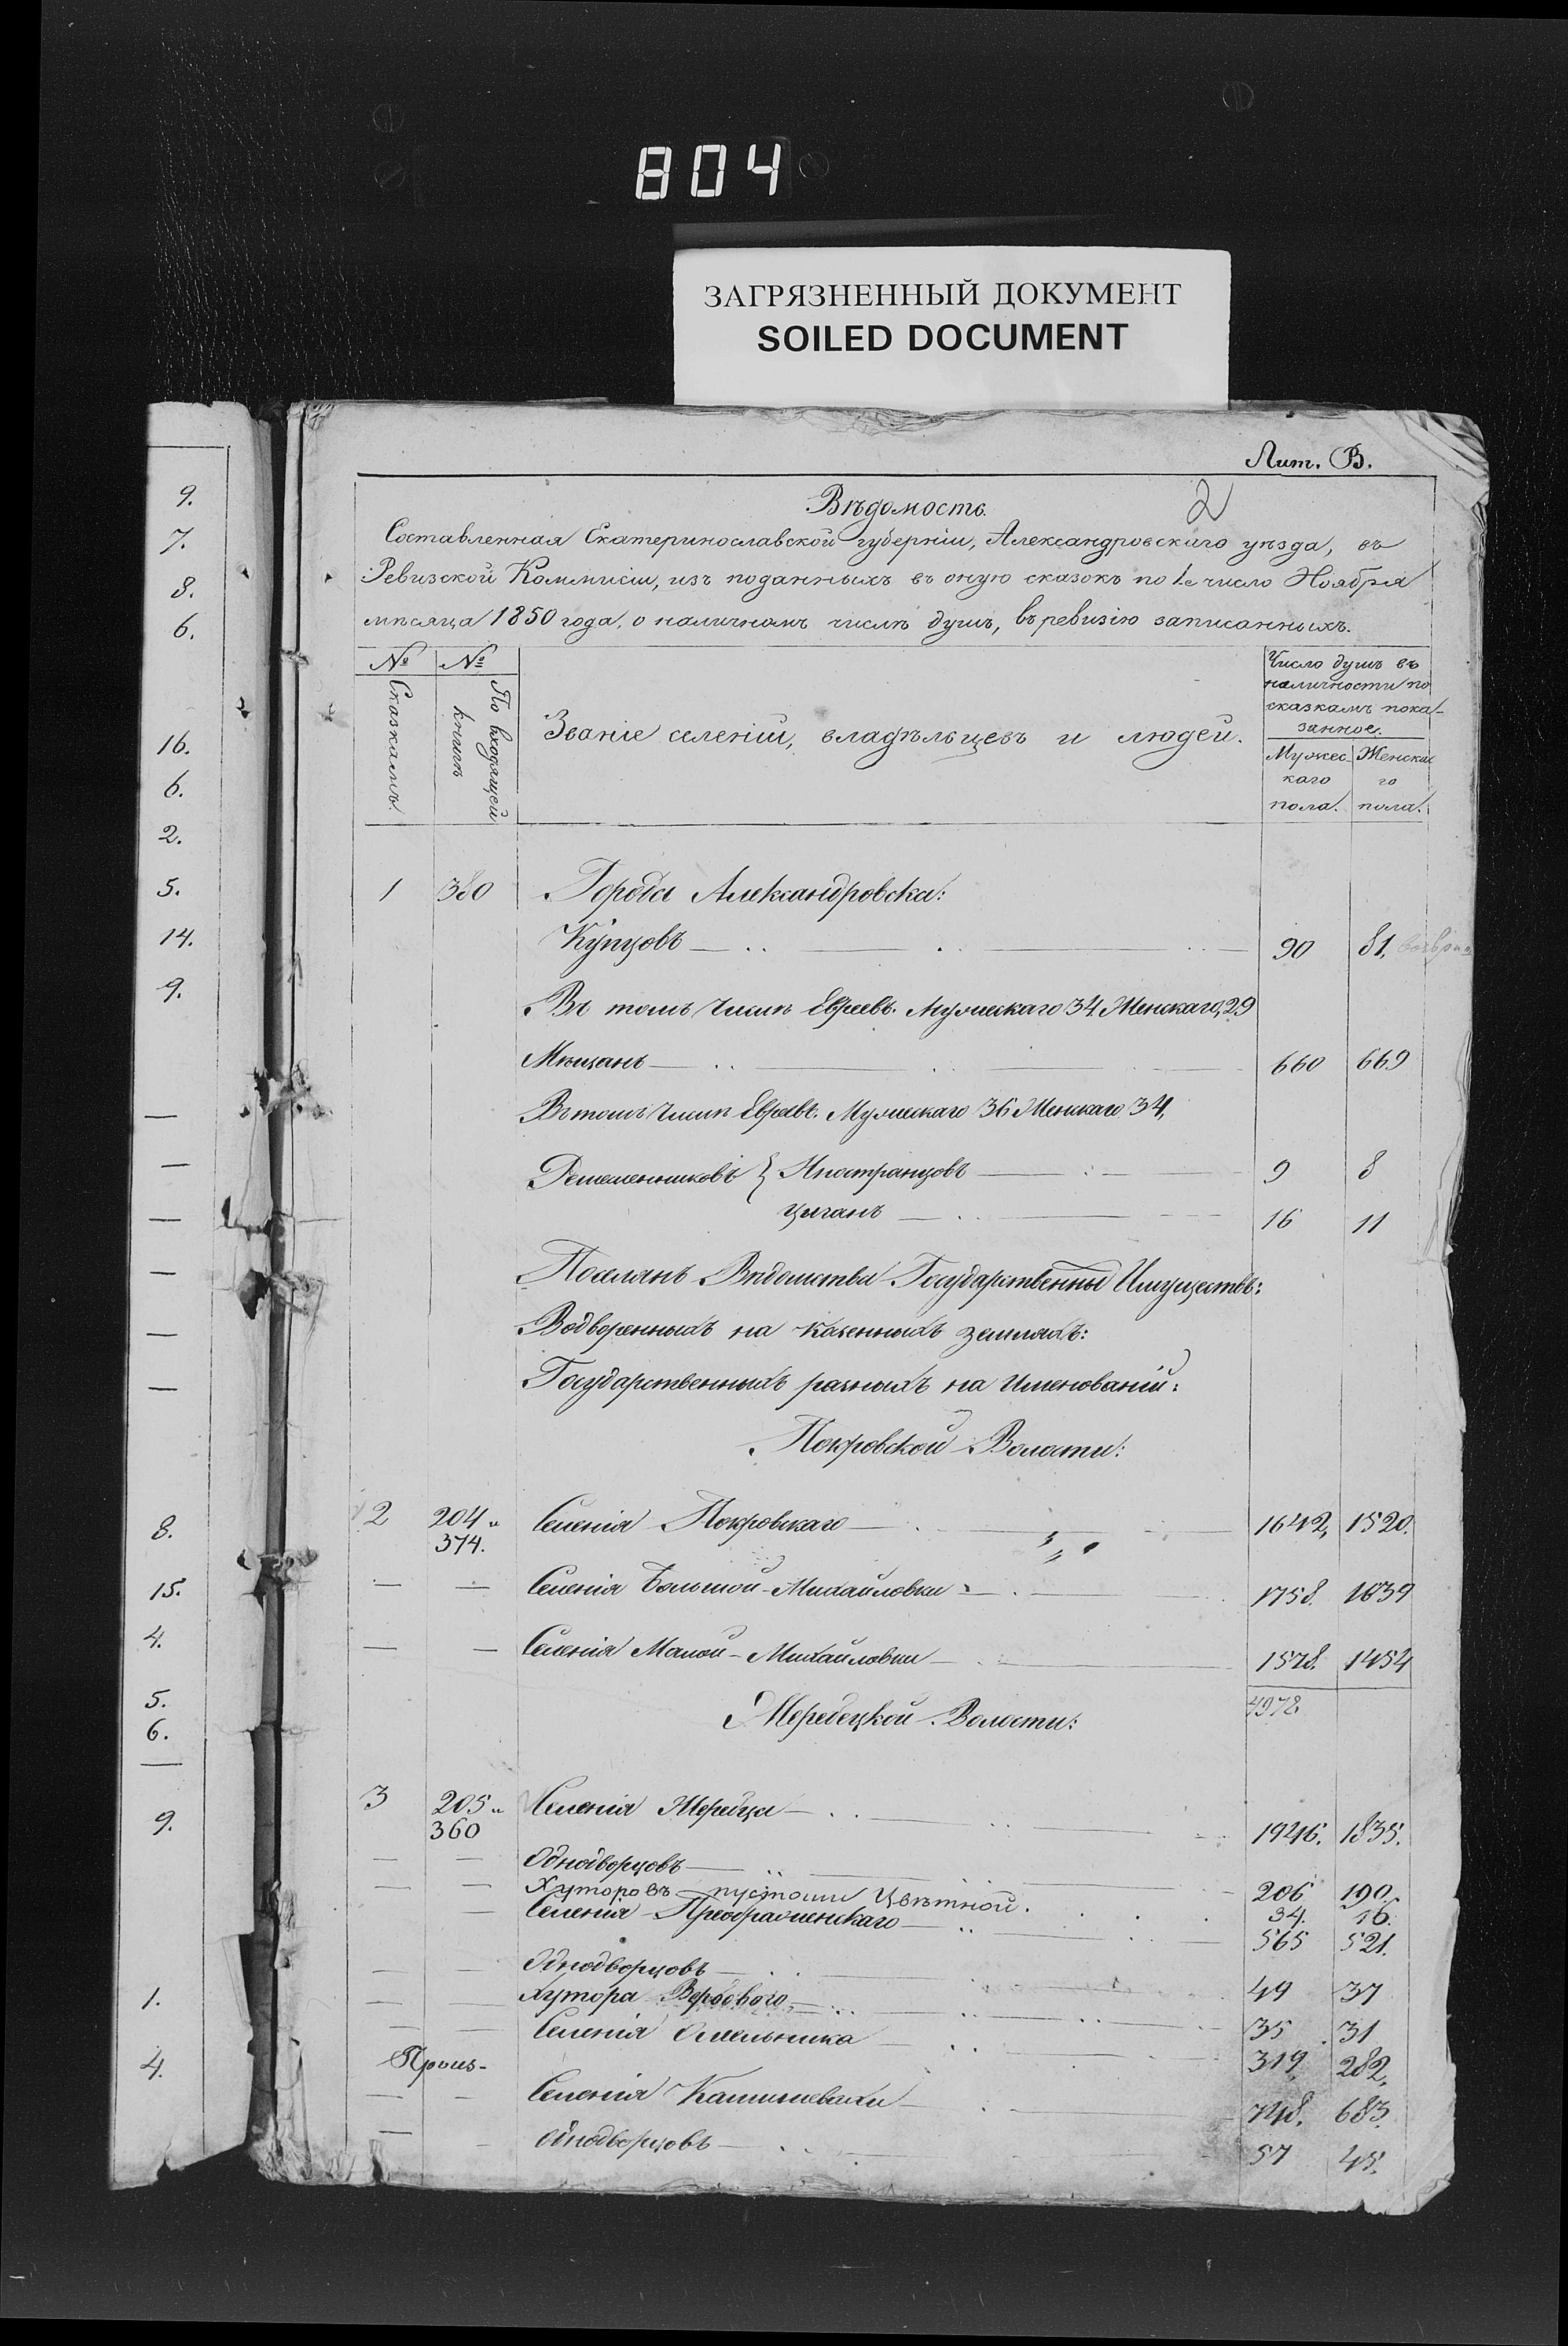 804
ЗАГРЯЗНЕННЫЙ ДОКУМЕНТ
SOILED DOCUMENT
9.
7.
8.
6.
16.
6.
2.
5.
14.
9.
8.
15.
4.
5.
6.
9.
1.
4.
Лит. В.
2
Вѣдомость.
Составленная Екатеринославской губерніи, Александровскаго уѣзда, въ
Ревизской Коммисіи, изъ поданныхъ въ оную сказокъ по 1е число Ноября
мѣсяца 1850 года, о наличномъ числѣ душъ, въ ревизію записанныхъ.
№ Сказкамъ.
№ По входящей книгѣ
Званіе селеній, владѣльцевъ и людей.
Число душъ въ
наличности по
сказкамъ пока-
занное.
Мужес- Женска
каго го
пола. пола.
1 380 Города Александровска:
Купцовъ 90 81,
Въ томъ числѣ Евреевъ. Мужескаго 34 Женскаго, 29
Мѣщанъ 660 669
Въ томъ числѣ Евреевъ. Мужескаго 36 Женскаго 34,
Ремесленниковъ { Иностранцовъ 9 8
Цыганъ 16 11
Поселянъ Вѣдомства Государственны Имуществъ:
Водворенныхъ на казенныхъ земляхъ:
Государственныхъ разныхъ на Именованій:
Покровской Волости:
2 204 и Селенія Покровскаго 1642, 1520.
374.
— — Селенія Большой-Михайловки 1758. 1639
— — Селенія Малой-Михайловки 1578. 1454
4978.
Жеребецкой Волости:
3 205 и Селенія Жеребца 1946. 1835.
360
— — Однодворцовъ 206 190.
— — Хуторовъ пустоши Цвѣтной. 34. 16.
— Селенія Преображенскаго 565 521.
— — Однодворцовъ 49 37
— — Хутора Вербоваго 35 31
— — Селенія Омельника 319. 282,
Проис-
— — Селенія Камышевахи 748. 683.
— - Однодворцовъ 57 45.